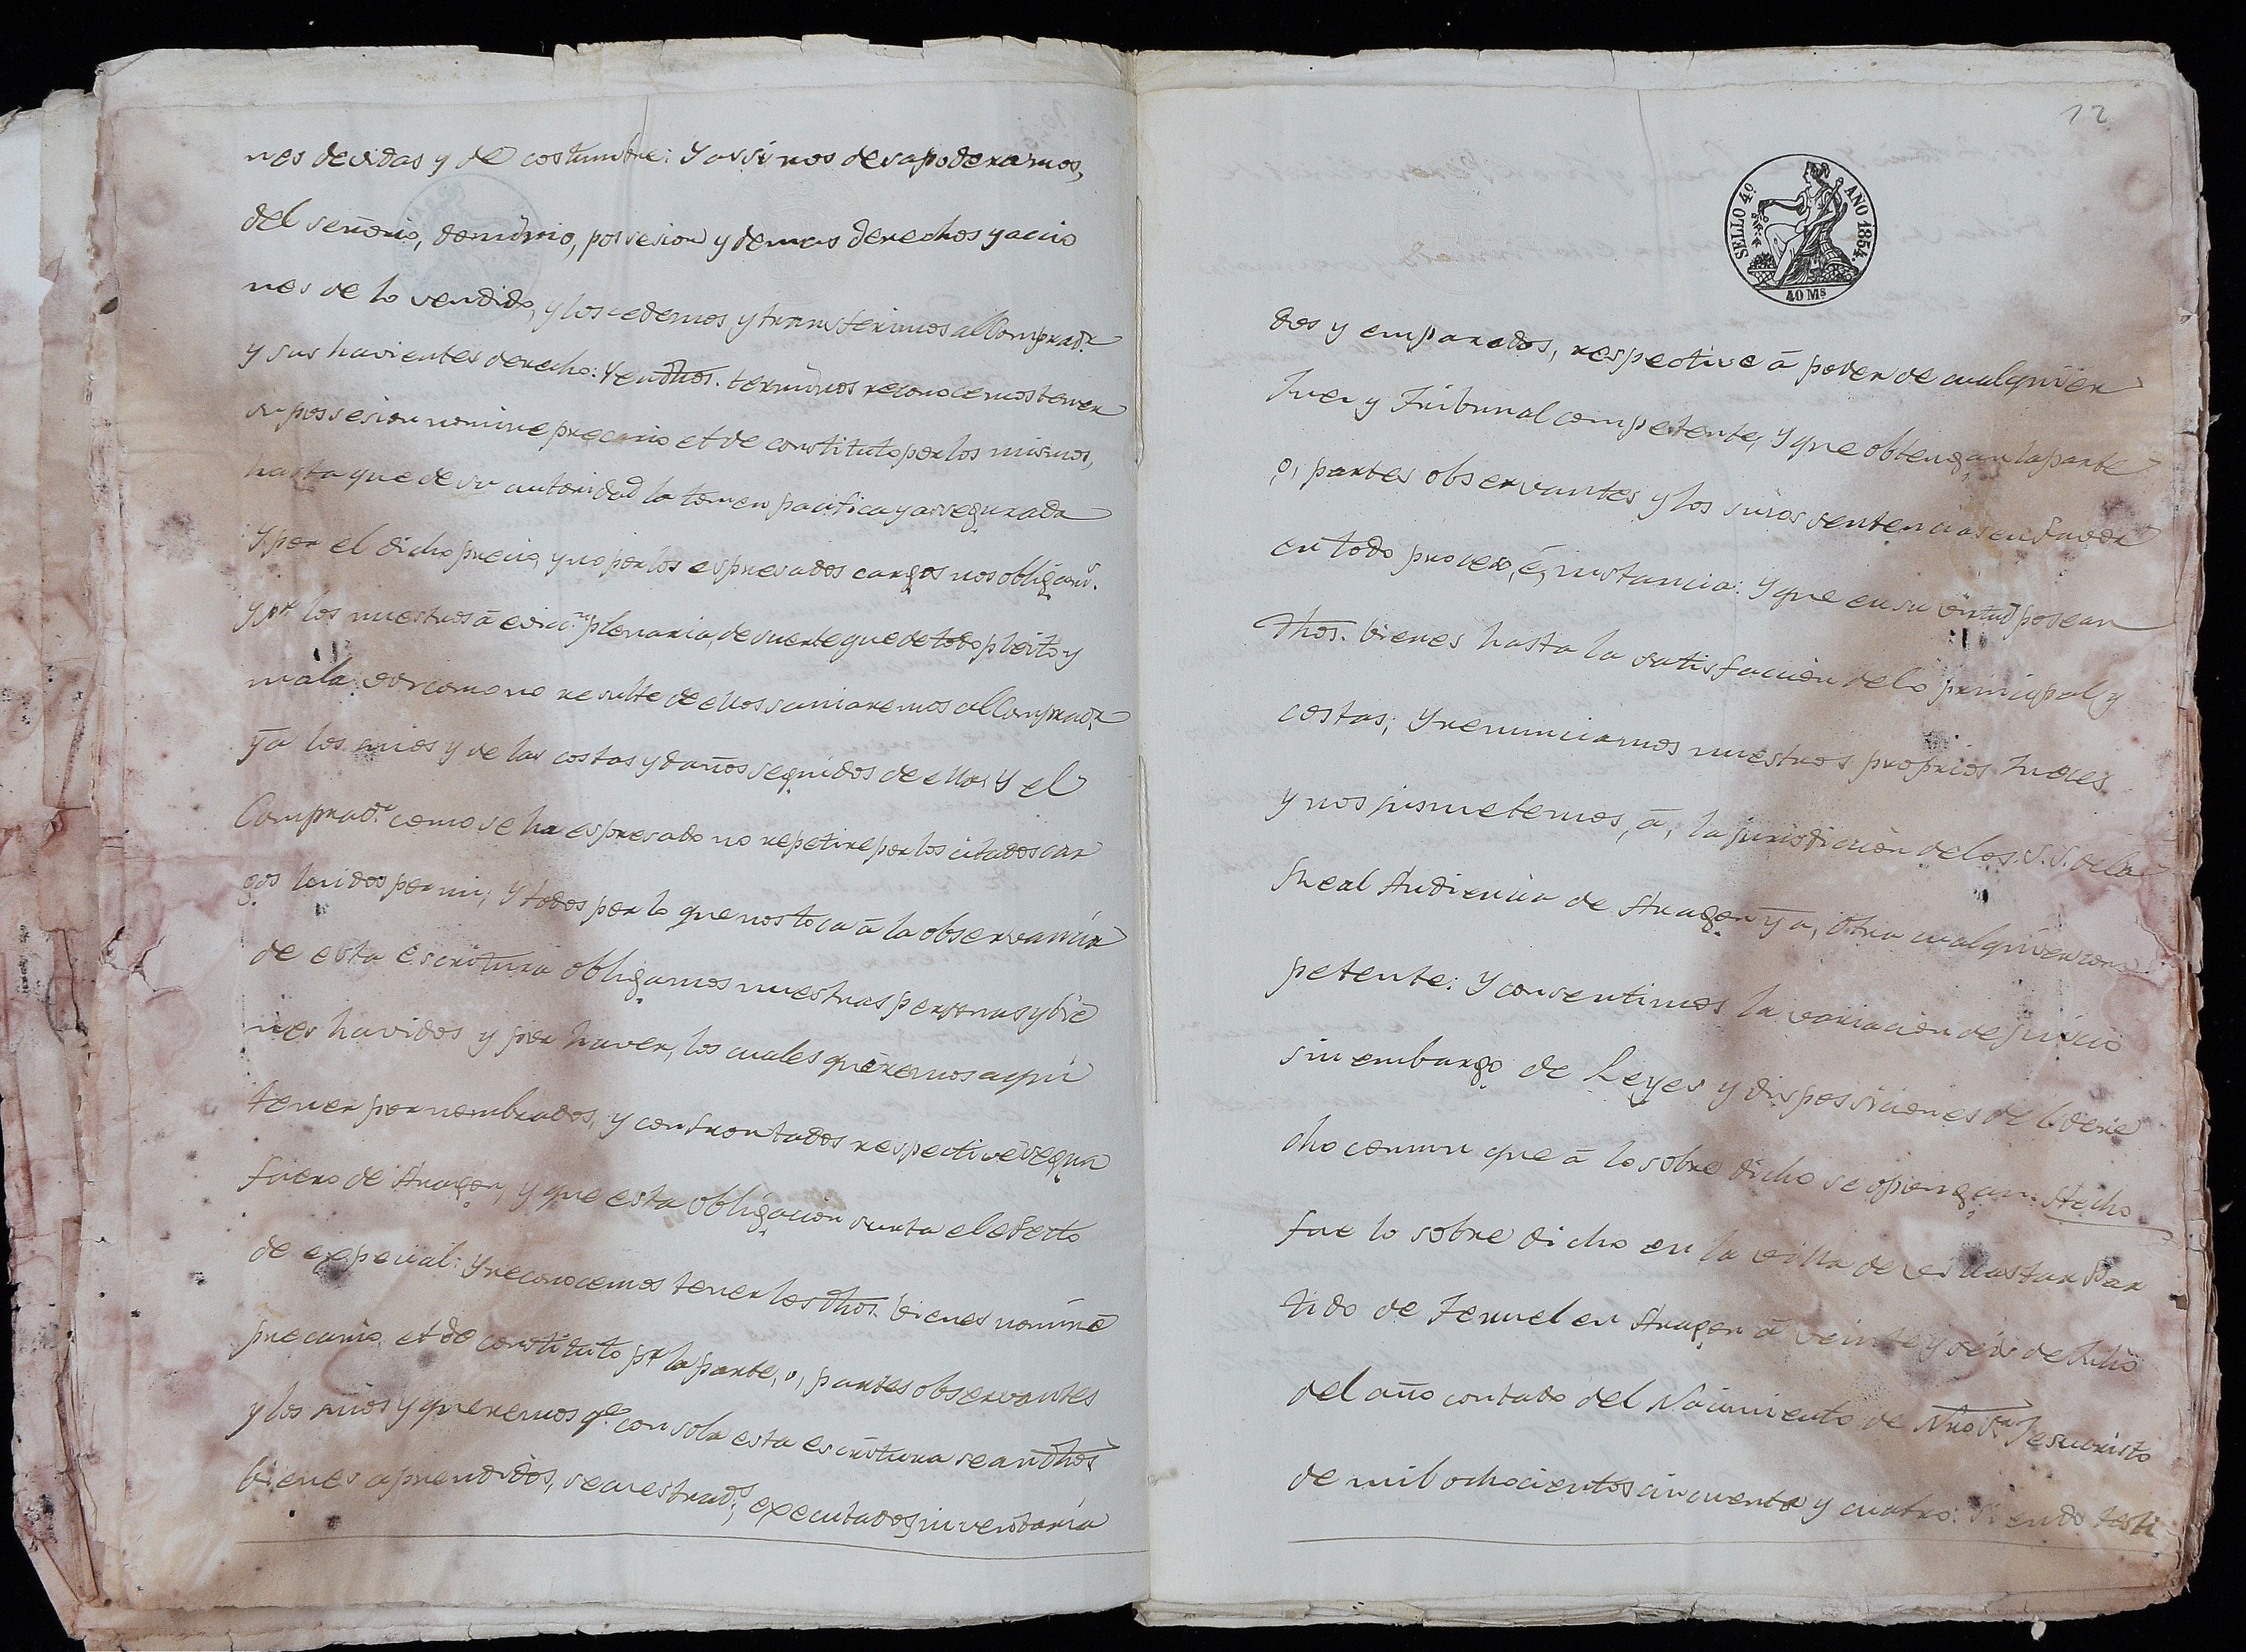 nes devidas y de costumbre: Y assi nos desapoderamos,
del señorio, dominio, possesion y demas derechos y accio
nes de lo vendido, y los cedemos y transferimos al Comprad.r
y sus havientes derecho: Y en dhos. terminos reconocemos tener
su possesion nomine precario et de constituto por los mismos,
hasta que de su autoridad la tomen pacifica y assegurada
Y por el dicho precio, y no por los espresados cargos nos obligam.s
y p.r los nuestros á evicc.on plenaria, de suerte que de todo pleito y
mala voz como no resulte de ellos saniaremos al Comprad.r
y á los suios y de las costas y daños seguidos de ella: Y el
Comprad.r como se ha espresado no repetire por los citados car
gos leidos por mi; Y todos por lo que nos toca á la observancia
de esta escritura obligamos nuestras personas y bie
nes havidos y por haver, los cuales queremos aqui
tener por nombrados, y confrontados respective segun
fuero de Aragon, y que esta obligacion surta el efecto
de especial: Y reconocemos tener los dhos. bienes nomine
precario, et de constituto p.r la parte, o, partes observantes
y los suios y queremos q.e con sola esta escritura sean dhos
bienes aprendidos, secuestrad.s, executados, inventaria
12
SELLO 4º AÑO 1854.
40 Ms
dos y emparados, respective á poder de cualquier
Juez y Tribunal competente, Y que obtengan la parte
o, partes observantes y los suios sentencias en favor
en todo proceso, é, instancia: Y que en su virtud posean
dhos. bienes hasta la satisfaccion de lo principal y
costas; Y renunciamos nuestros proprios Jueces
y nos jusmetemos, á, la jurisdiccion de los S.S. de la
Real Audiencia de Aragon y á, otra cualquier com
petente: Y consentimos la variacion de juicio
sin embargo de Leyes y disposiciones del dere
cho comun que á lo sobre dicho se opongan: Hecho
fue lo sobre dicho en la villa de Par
tido de Teruel en Aragon á veinte y seis de Julio
del año contado del Nacimiento de Nro S.r Jesucristo
de mil ochocientos cincuenta y cuatro: Siendo testi